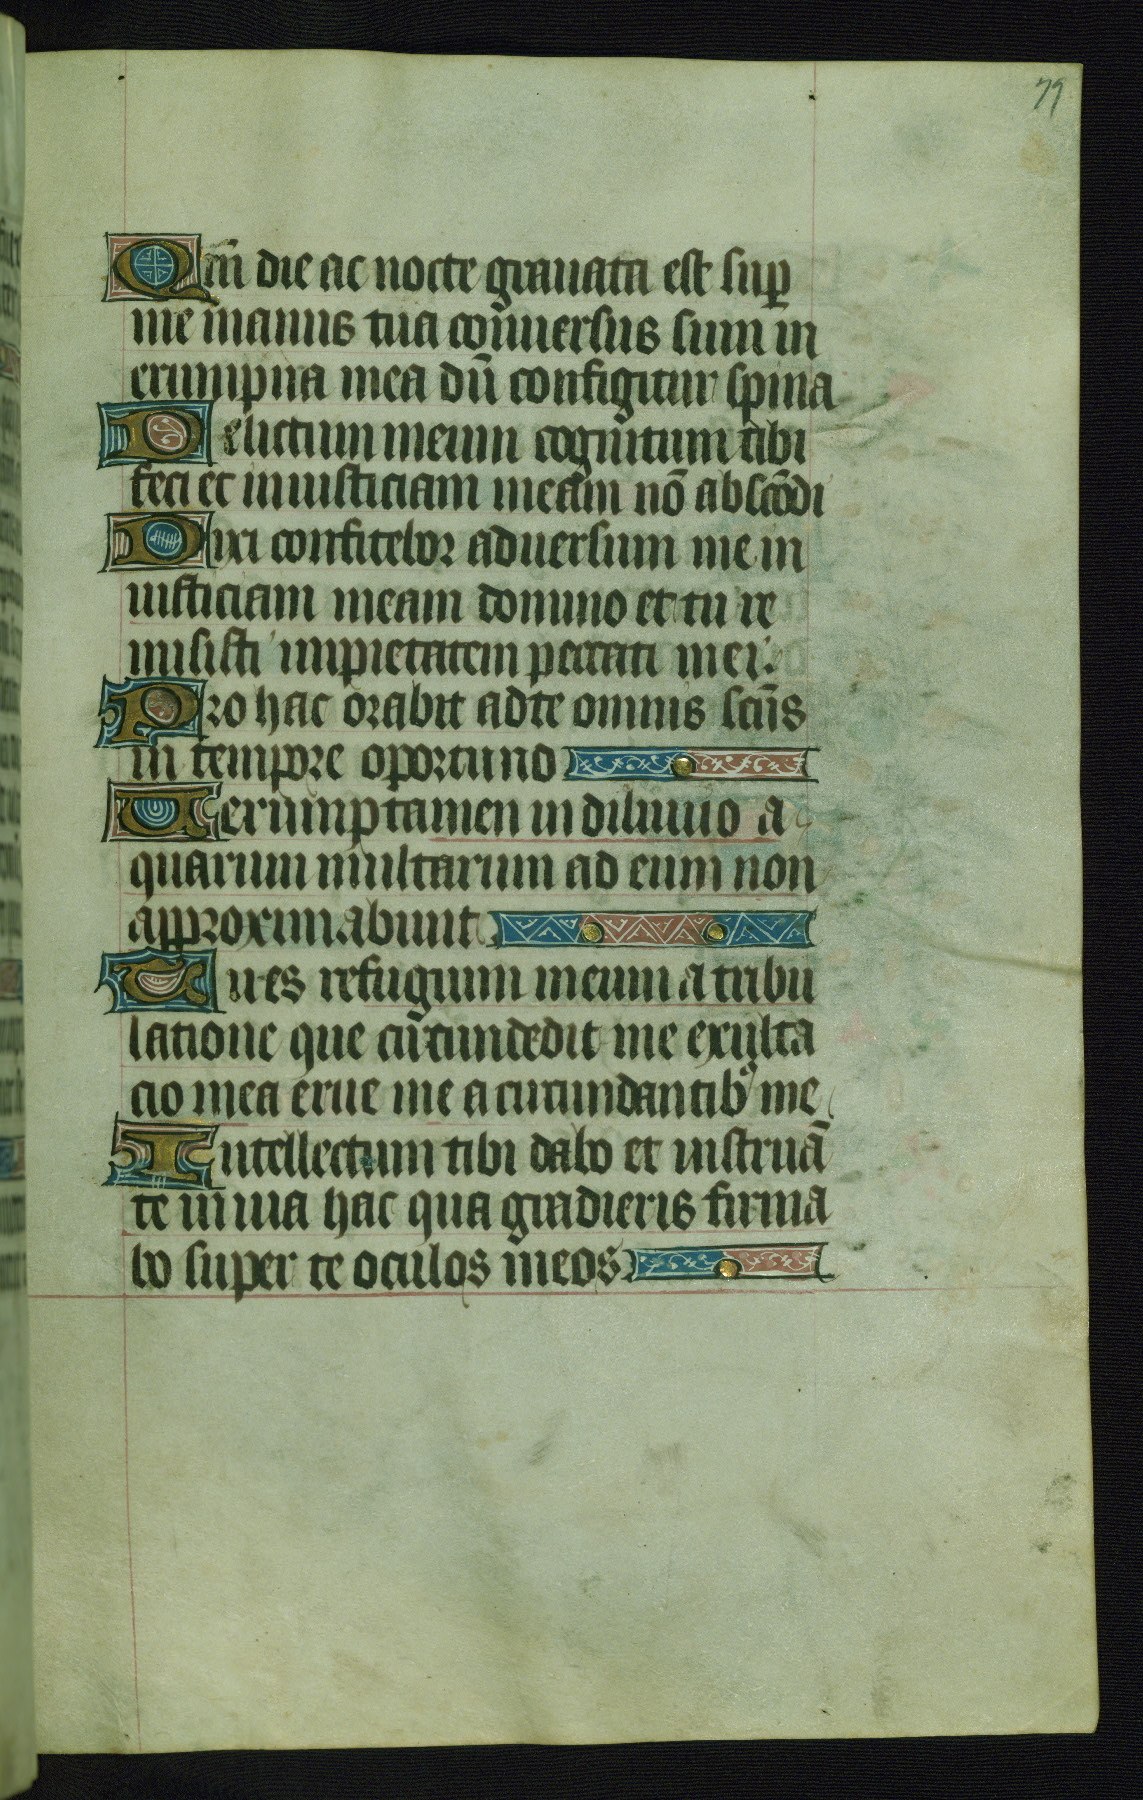 79
Qm̄ die ac nocte grauata est sup̱
me manus tua conuersus sum in
erumpna mea dū configitur spina
Delictum meum cognitum tibi
feci et iniusticiam meam nō abscōdi
Dixi confitebor aduersum me in
iusticiam meam domino et tu re
misisti impietatem peccati mei
Pro hac orabit ad te omnis scūs
in tempore oportuno
Uerumptamen in diluuio a
quarum multarum ad eum non
approximabunt
Tu es refugium meum a tribu
latione que circundedit me exulta
cio mea erue me a circundantibꝰ me
Intellectum tibi dabo et instruā
te in uia hac qua gradieris firma
bo super te oculos meos